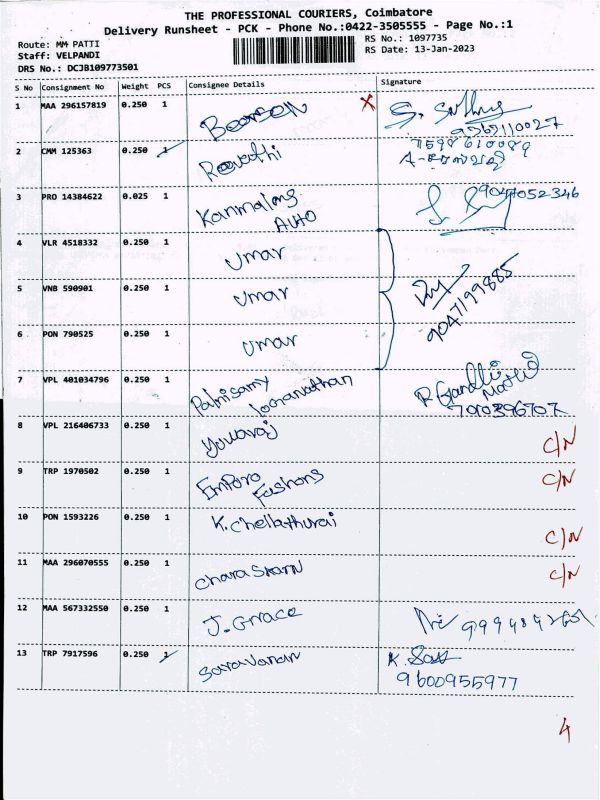 THE PROFESSIONAL COURIERS, Coimbatore
Delivery Runsheet - PCK - Phone No.:0422-3505555 - Page No.:1
Route: MM PATTI
RS No.: 1097735
Staff: VELPANDI
RS Date: 13-Jan-2023
DRS No.: DCJB109773501
S No Consignment No Weight PCS Consignee Details Signature
1 MAA 296157819 0.250 1 X
9262110027
2 CMM 125363 0.250 1 Revathi
7598610089
3 PRO 14384622 0.025 1 Kanmalong
Auto
9047052346
4 VLR 4518332 0.250 1 Umar
5 VNB 590901 0.250 1 Umar
9047199885
6 PON 790525 0.250 1 Umar
7 VPL 401034796 0.250 1 Palnisamy
loganathan
R Gandhi
7010396707
8 VPL 216406733 0.250 1 Yuvaraj C/N
9 TRP 1970502 0.250 1 Emporo
Fashons
C/N
10 PON 1593226 0.250 1 K.chellathurai C/N
11 MAA 296070555 0.250 1 C/N
12 MAA 567332550 0.250 1 J. Grace
13 TRP 7917596 0.250 1 Saravanan K.
9600955977
4